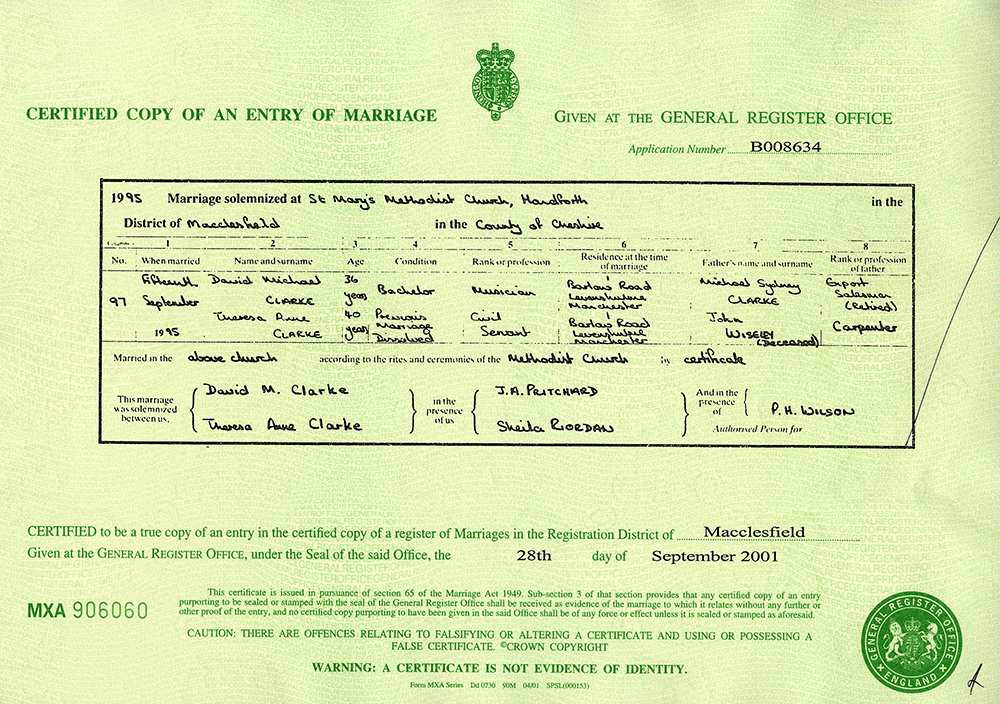 CERTIFIED COPY OF AN ENTRY OF MARRIAGE
GIVEN AT THE GENERAL REGISTER OFFICE
Application Number B008634
1995 Marriage solemnized at St Mary's Methodist Church, Handforth in the
District of Macclesfield in the County of Cheshire
1 2 3 4 5 6 7 8
No. When married Name and surname Age Condition Rank or profession Residence at the time of marriage Father's name and surname Rank or profession of father
97 Fifteenth September 1995
David Michael CLARKE 36 years Bachelor Musician Barlow Road Levenshulme Manchester Michael Sydney CLARKE Export Salesman (Retired)
Theresa Anne CLARKE 40 years Previous Marriage Dissolved Civil Servant Barlow Road Levenshulme Manchester John WISELEY (Deceased) Carpenter
Married in the above church according to the rites and ceremonies of the Methodist Church by certificate
This marriage was solemnized between us,
David M. Clarke
Theresa Anne Clarke
in the presence of us
J.A. PRITCHARD
Sheila RIORDAN
And in the presence of
P.H. WILSON
Authorised Person for
CERTIFIED to be a true copy of an entry in the certified copy of a register of Marriages in the Registration District of Macclesfield
Given at the GENERAL REGISTER OFFICE, under the Seal of the said Office, the 28th day of September 2001
This certificate is issued in pursuance of section 65 of the Marriage Act 1949. Sub-section 3 of that section provides that any certified copy of an entry
purporting to be sealed or stamped with the seal of the General Register Office shall be received as evidence of the marriage to which it relates without any further or
other proof of the entry, and no certified copy purporting to have been given in the said Office shall be of any force or effect unless it is sealed or stamped as aforesaid.
MXA 906060
CAUTION: THERE ARE OFFENCES RELATING TO FALSIFYING OR ALTERING A CERTIFICATE AND USING OR POSSESSING A
FALSE CERTIFICATE. ©CROWN COPYRIGHT
WARNING: A CERTIFICATE IS NOT EVIDENCE OF IDENTITY.
Form MXA Series Dd 0730 90M 04/01 SPSL(000153)
GENERAL REGISTER OFFICE
ENGLAND